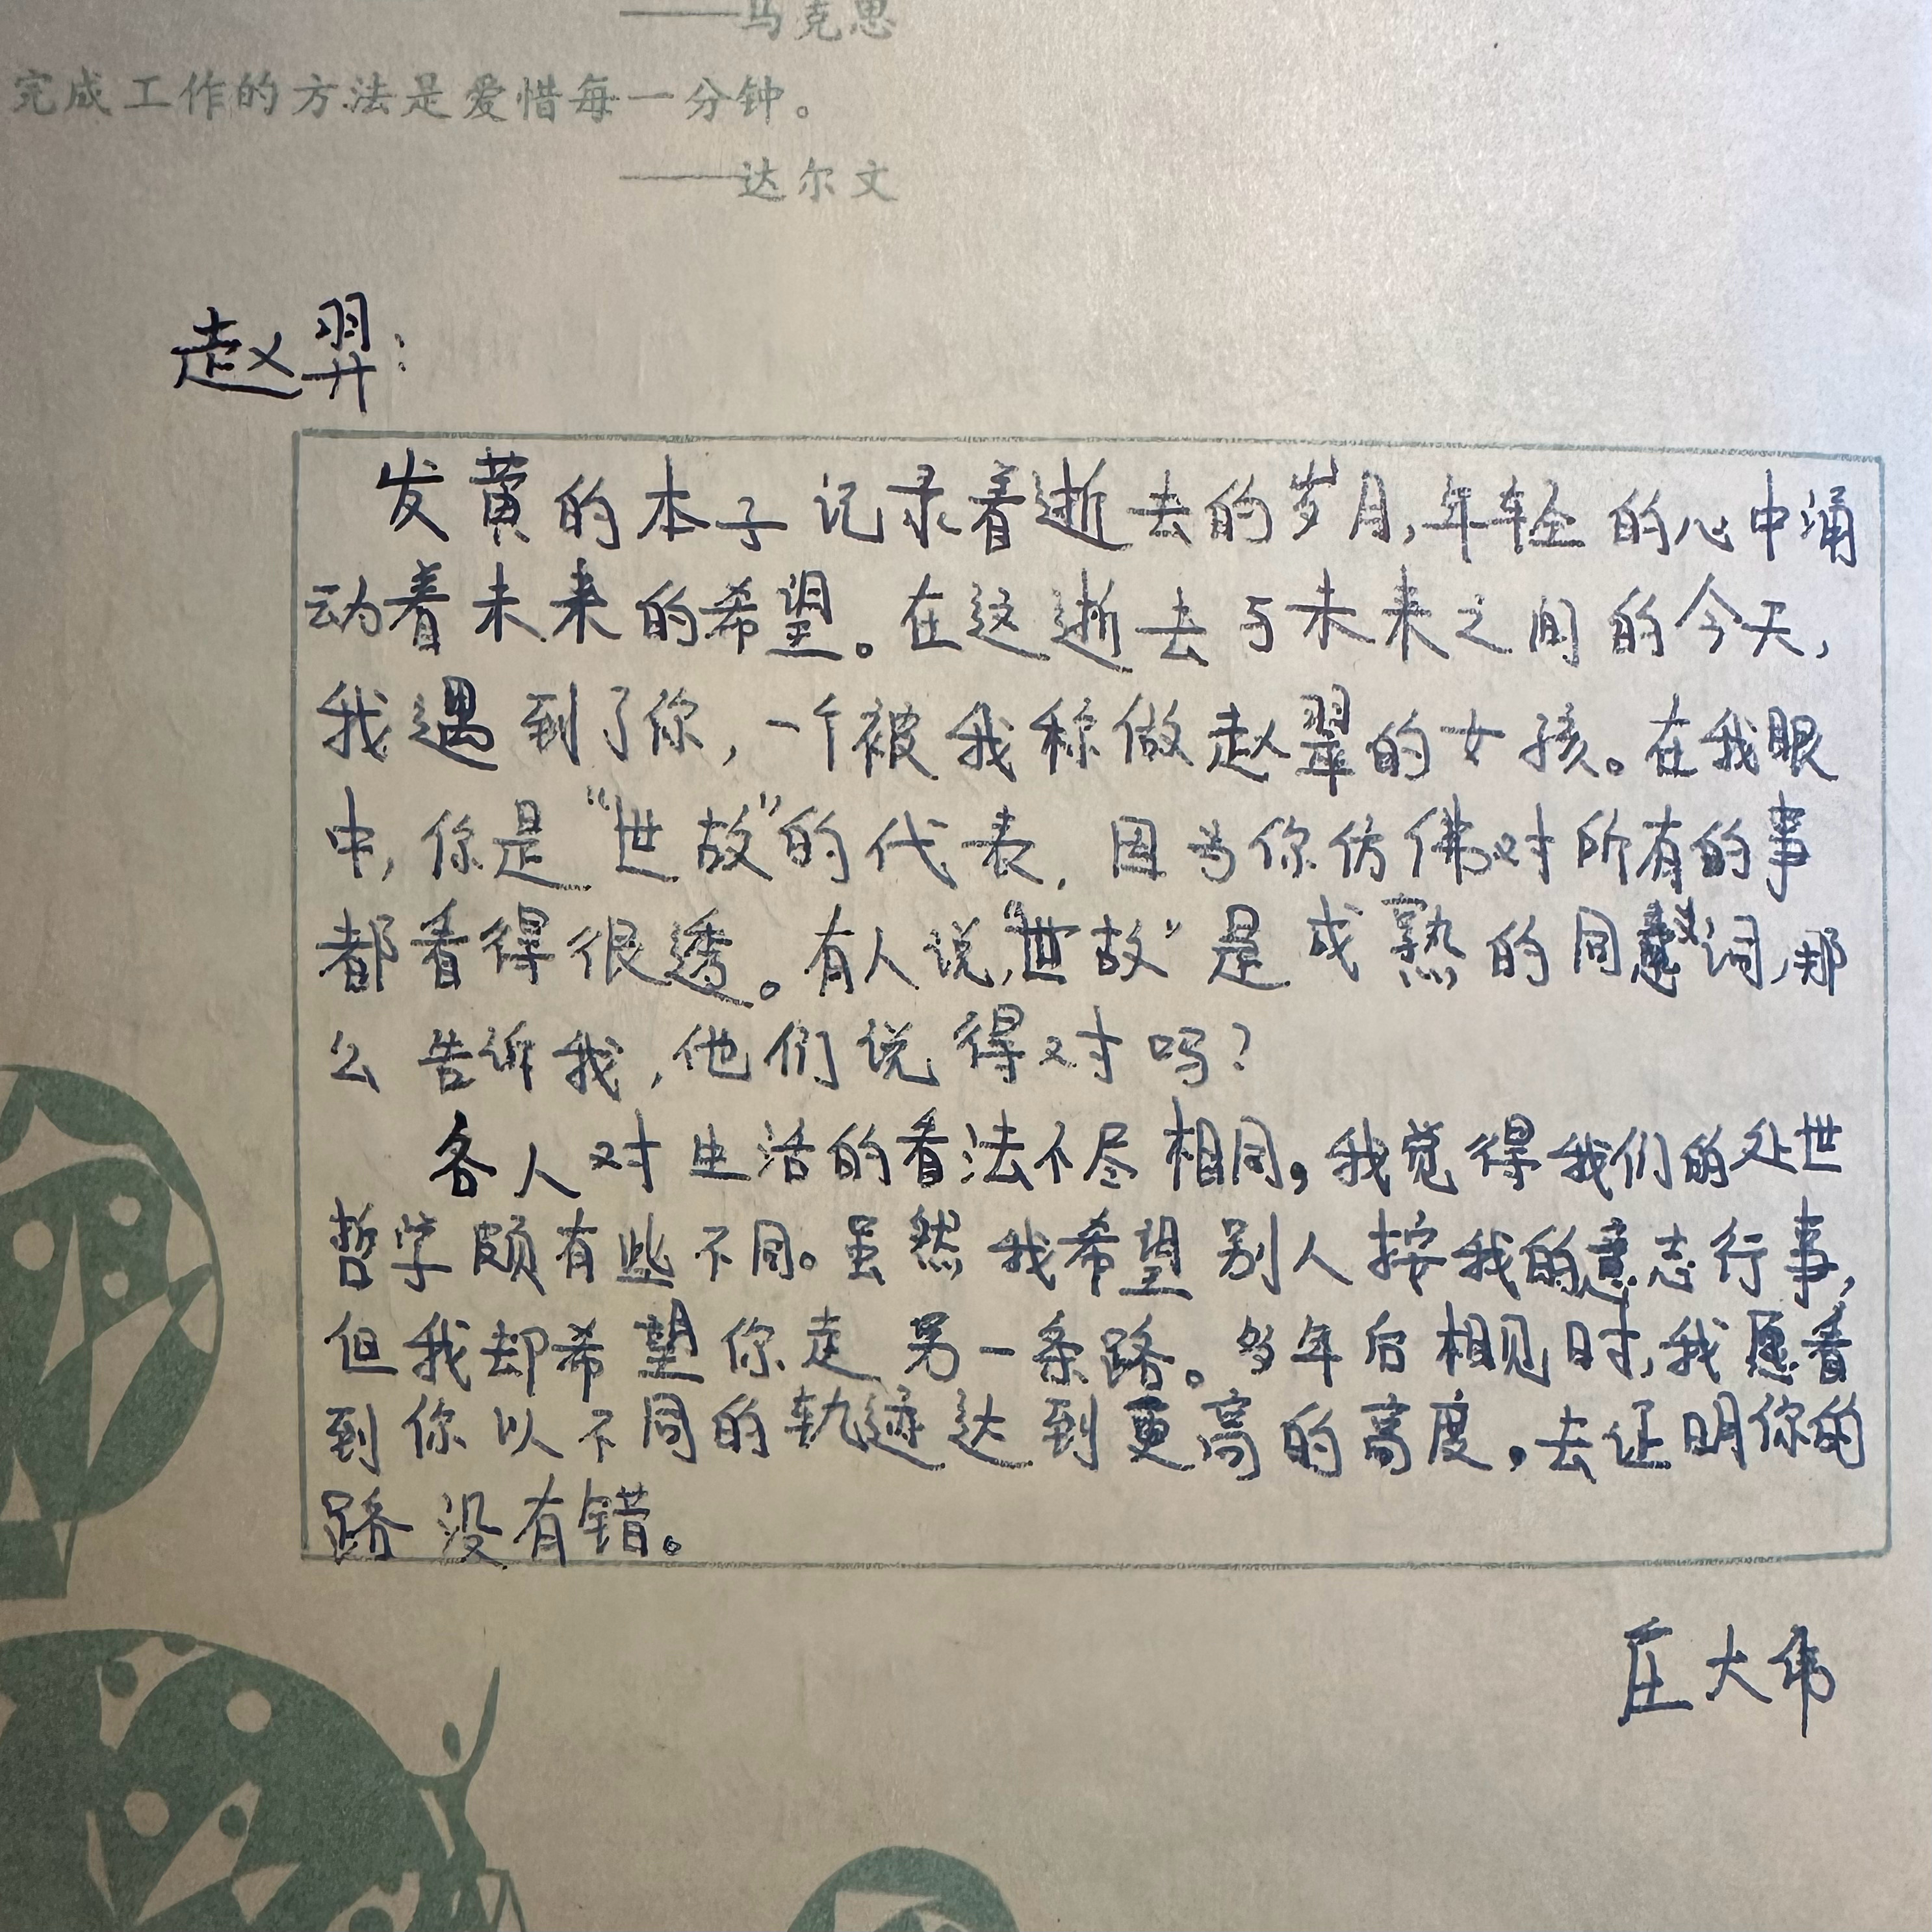 ——马克思
完成工作的方法是爱惜每一分钟。
——达尔文
赵羿:
发黄的本子记录着逝去的岁月,年轻的心中涌
动着未来的希望。在这逝去与未来之间的今天,
我遇到了你,一个被我称做赵翠的女孩。在我眼
中,你是“世故”的代表,因为你仿佛对所有的事
都看得很透。有人说,“世故”是成熟的同义词,那
么告诉我,他们说得对吗?
各人对生活的看法不尽相同,我觉得我们的处世
哲学颇有些不同。虽然我希望别人按我的意志行事,
但我却希望你走另一条路。多年后相见时,我愿看
到你以不同的轨迹达到更高的高度,去证明你的
路没有错。
庄大伟